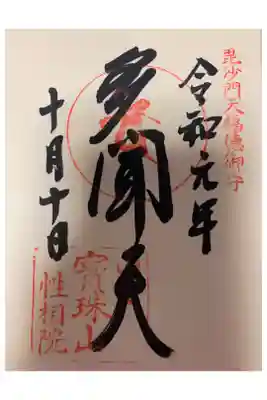 毘沙門天福徳御守
令和元年
多聞天
十月十日
寳珠山
性相院